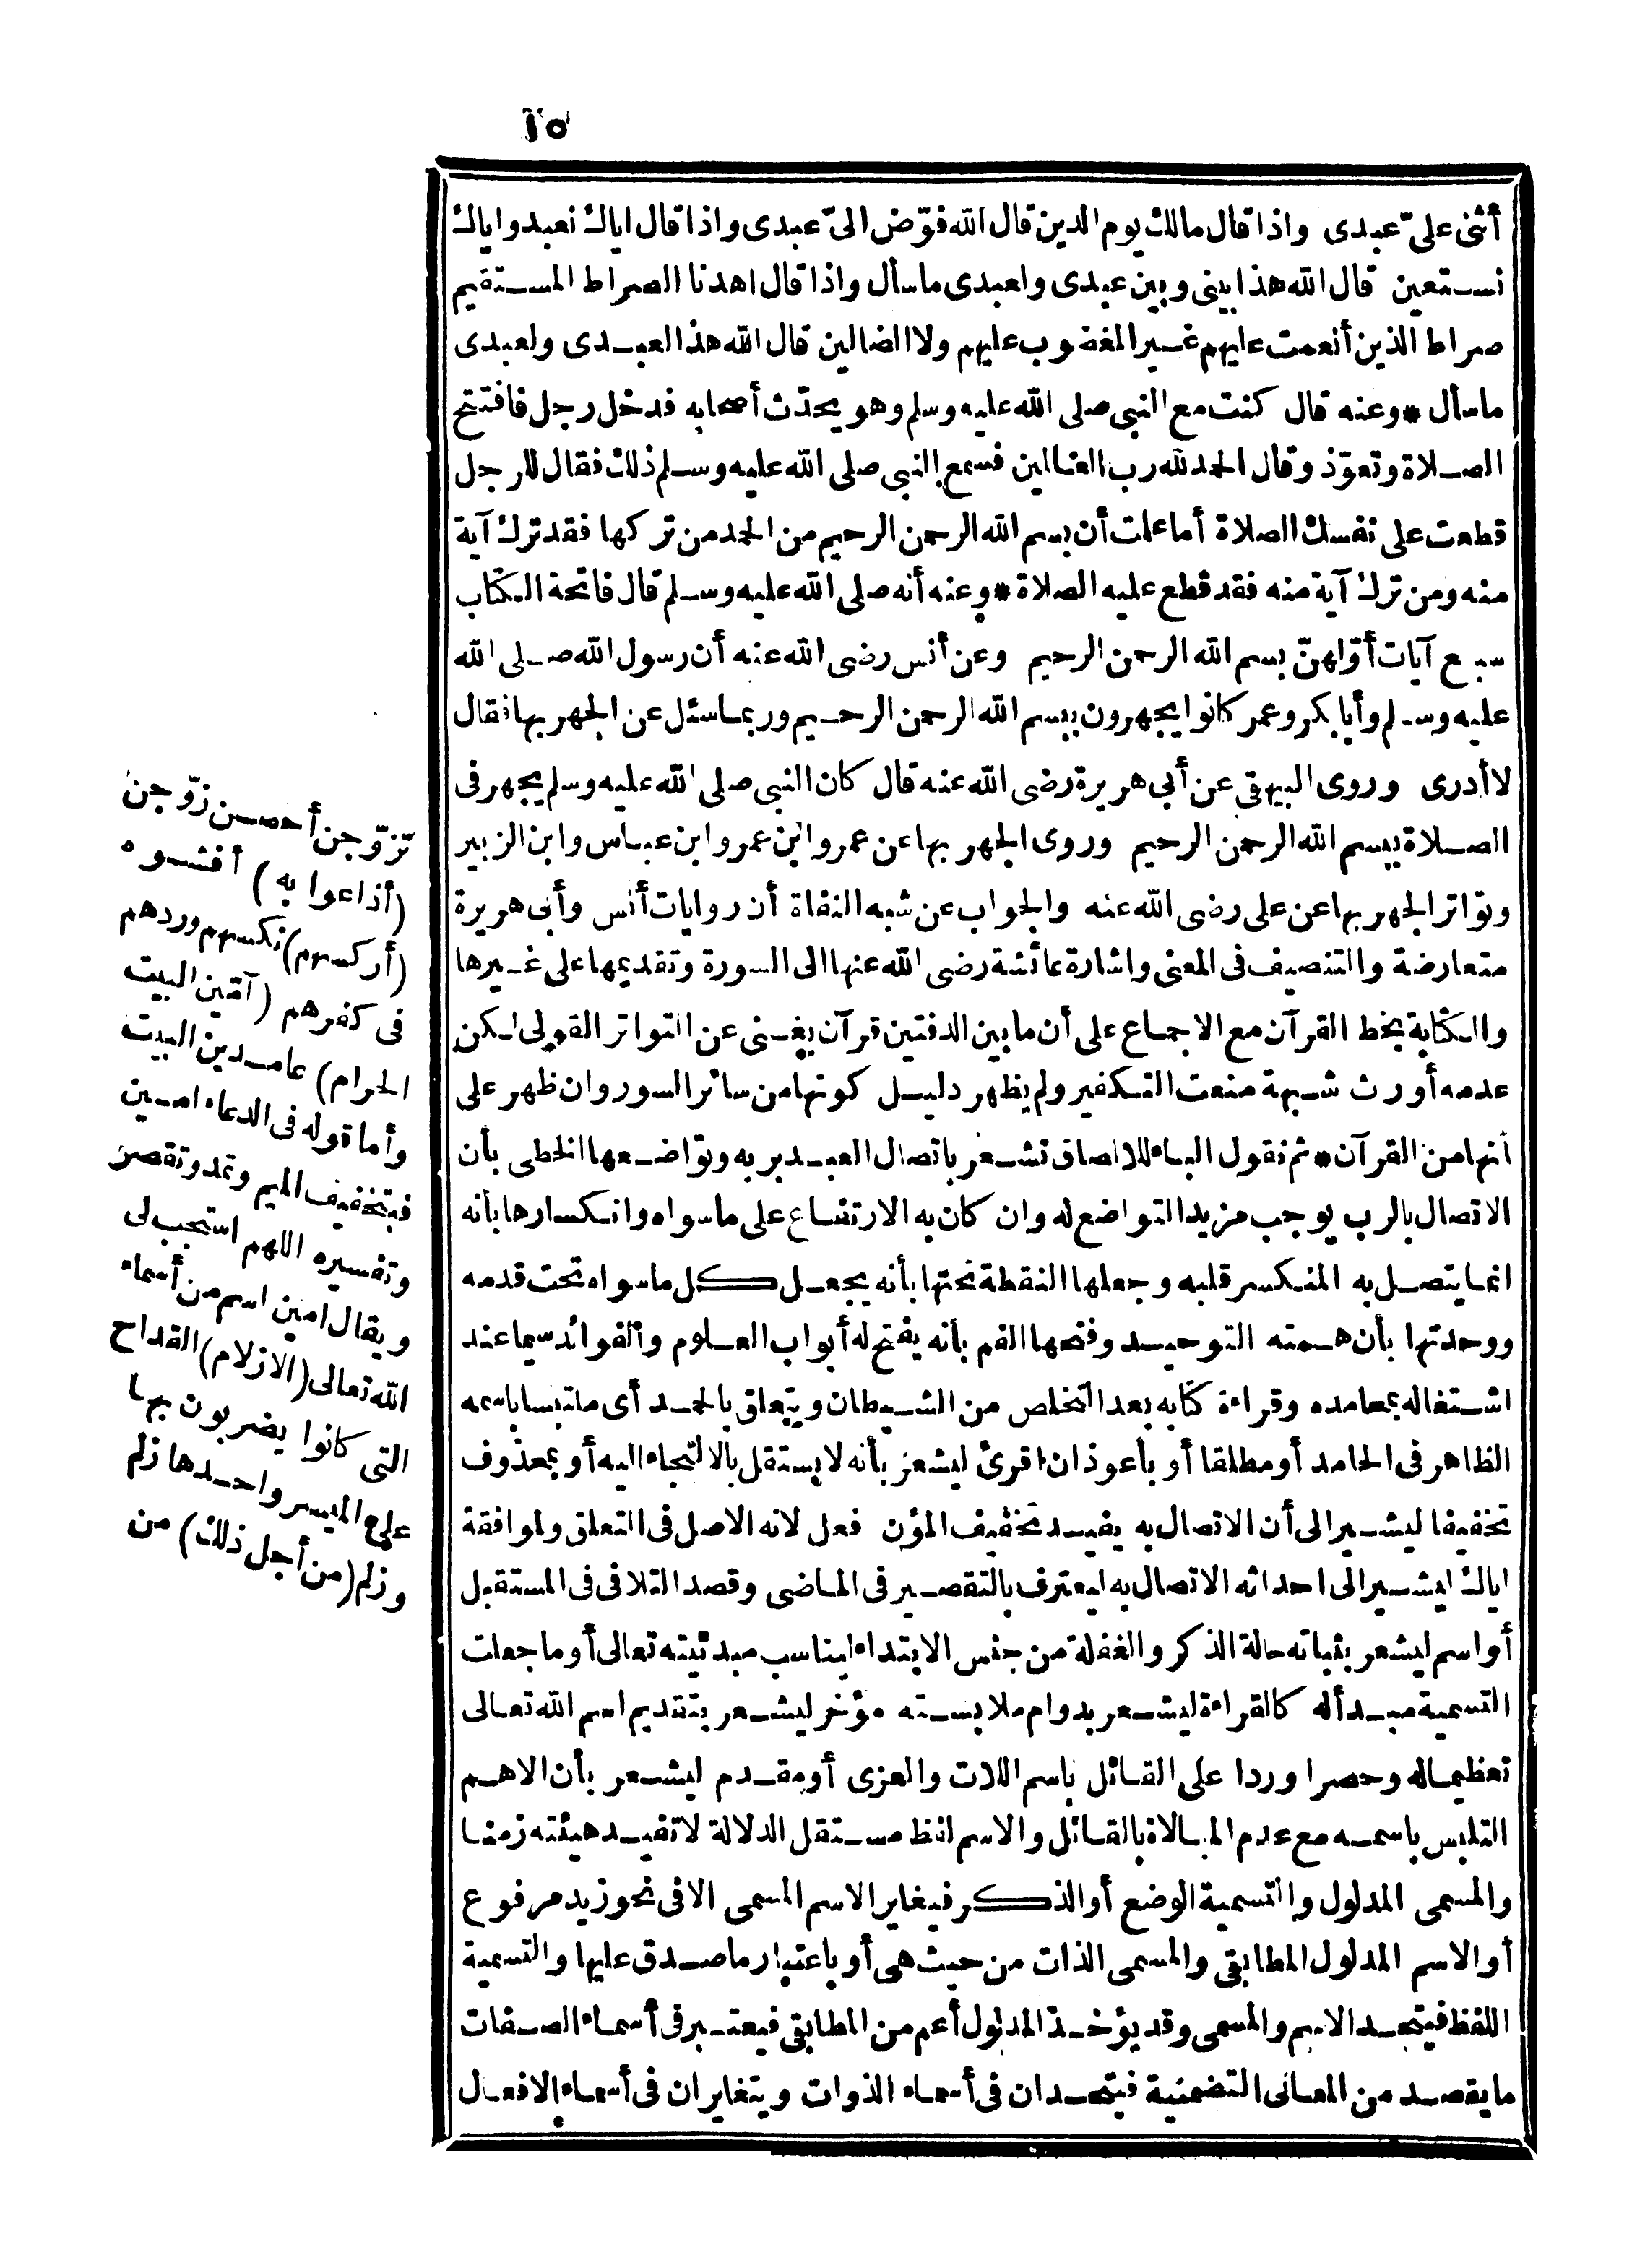 ١٥
أثنى علىّ عبدى واذا قال مالك يوم الدين قال الله فوّض الىّ عبدى واذا قال اياك نعبد واياك
نستعين قال الله هذا بينى وبين عبدى ولعبدى ماسأل واذا قال اهدنا الصراط المستقيم
صراط الذين أنعمت عليهم غير المغضوب عليهم ولا الضالين قال الله هذا العبدى ولعبدى
ماسأل * وعنه قال كنت مع النبى صلى الله عليه وسلم وهو يحدّث أصحابه فدخل رجل فافتتح
الصلاة وتعوّذ وقال الحمد لله رب العالمين فسمع النبى صلى الله عليه وسلم ذلك فقال للرجل
قطعت على نفسك الصلاة أما علمت أن بسم الله الرحمن الرحيم من الحمد من تركها فقد ترك آية
منه ومن ترك آية منه فقد قطع عليه الصلاة * وعنه أنه صلى الله عليه وسلم قال فاتحة الكتاب
سبع آيات أوّلهنّ بسم الله الرحمن الرحيم وعن أنس رضى الله عنه أن رسول الله صلى الله
عليه وسلم وأبا بكر وعمر كانوا يجهرون ببسم الله الرحمن الرحيم وربما سئل عن الجهر بها فقال
لا أدرى وروى البيهقي عن أبي هريرة رضى الله عنه قال كان النبى صلى الله عليه وسلم يجهر فى
الصلاة ببسم الله الرحمن الرحيم وروى الجهر بها عن عمر وابن عمر وابن عباس وابن الزبير
وتواتر الجهر بها عن على رضى الله عنه والجواب عن شبه النفاة أن روايات أنس وأبى هريرة
متعارضة والتنصيف فى المعنى واشارة عائشة رضى الله عنها الى السورة وتقديمها على غيرها
والكتابة بخط القرآن مع الاجماع على أن ما بين الدفتين قرآن يغنى عن التواتر القولى لكن
عدمه أورث شبهة منعت التكفير ولم يظهر دليل كونها من سائر السور وان ظهر على
أنها من القرآن * ثم نقول الباء للالصاق تشعر باتصال العبد بربه وتواضعها الخطى بأن
الاتصال بالرب يوجب مزيد التواضع له وان كان به الارتفاع على ماسواه وانكسارها بأنه
انما يتصل به المنكسر قلبه وجعلها النقطة تحتها بأنه يجعل كل ماسواه تحت قدمه
ووحدتها بأن همته التوحيد وفتحها الفم بأنه يفتح له أبواب العلوم والفوائد سيما عند
اشتغاله بمحامده وقراءة كتابه بعد التخلص من الشيطان ويتعلق بالحمد أى ملتبسا باسمه
الظاهر فى الحامد أو مطلقا أو بأعوذ ان اقرئ ليشعر بأنه لا يستقل بالالتجاء اليه أو بمحذوف
تخفيفا ليشير الى أن الاتصال به يفيد تخفيف المؤن فعل لانه الاصل فى التعلق ولموافقة
اياك ليشير الى احداثه الاتصال به ليعترف بالتقصير فى الماضى وقصد التلافى فى المستقبل
أو اسم ليشعر بثباته حالة الذكر والغفلة من جنس الابتداء ليناسب مبدئيته تعالى أو ما جعلت
التسمية مبدأ له كالقراءة ليشعر بدوام ملابسته مؤخر ليشعر بتقديم اسم الله تعالى
تعظيما له وحصرا وردا على القائل باسم اللات والعزى أو مقدم ليشعر بأن الاهم
التلبس باسمه مع عدم المبالاة بالقائل والاسم لفظ مستقل الدلالة لا تفيد هيئته زمنا
والمسمى المدلول والتسمية الوضع أو الذكر فيغاير الاسم المسمى الا فى نحو زيد مرفوع
أو الاسم المدلول المطابقى والمسمى الذات من حيث هى أو باعتبار ما صدق عليها والتسمية
اللفظ فيتحد الاسم والمسمى وقد يؤخذ المدلول أعم من المطابقى فيعتبر فى أسماء الصفات
ما يقصد من المعانى التضمنية فيتحدان فى أسماء الذوات ويتغايران فى أسماء الافعال
تزوّجن أحصن زوّجن
(أذاعوا به) أفشوه
(أركسهم) نكسهم وردهم
فى كفرهم (آمّين البيت
الحرام) عامدين البيت
وأما قوله فى الدعاء امين
فبتخفيف الميم وتمد وتقصر
وتفسيره اللهم استجب لى
ويقال امين اسم من أسماء
الله تعالى (الازلام) القداح
التى كانوا يضربون بها
على الميسر واحدها زلم
وزلم (من أجل ذلك) من